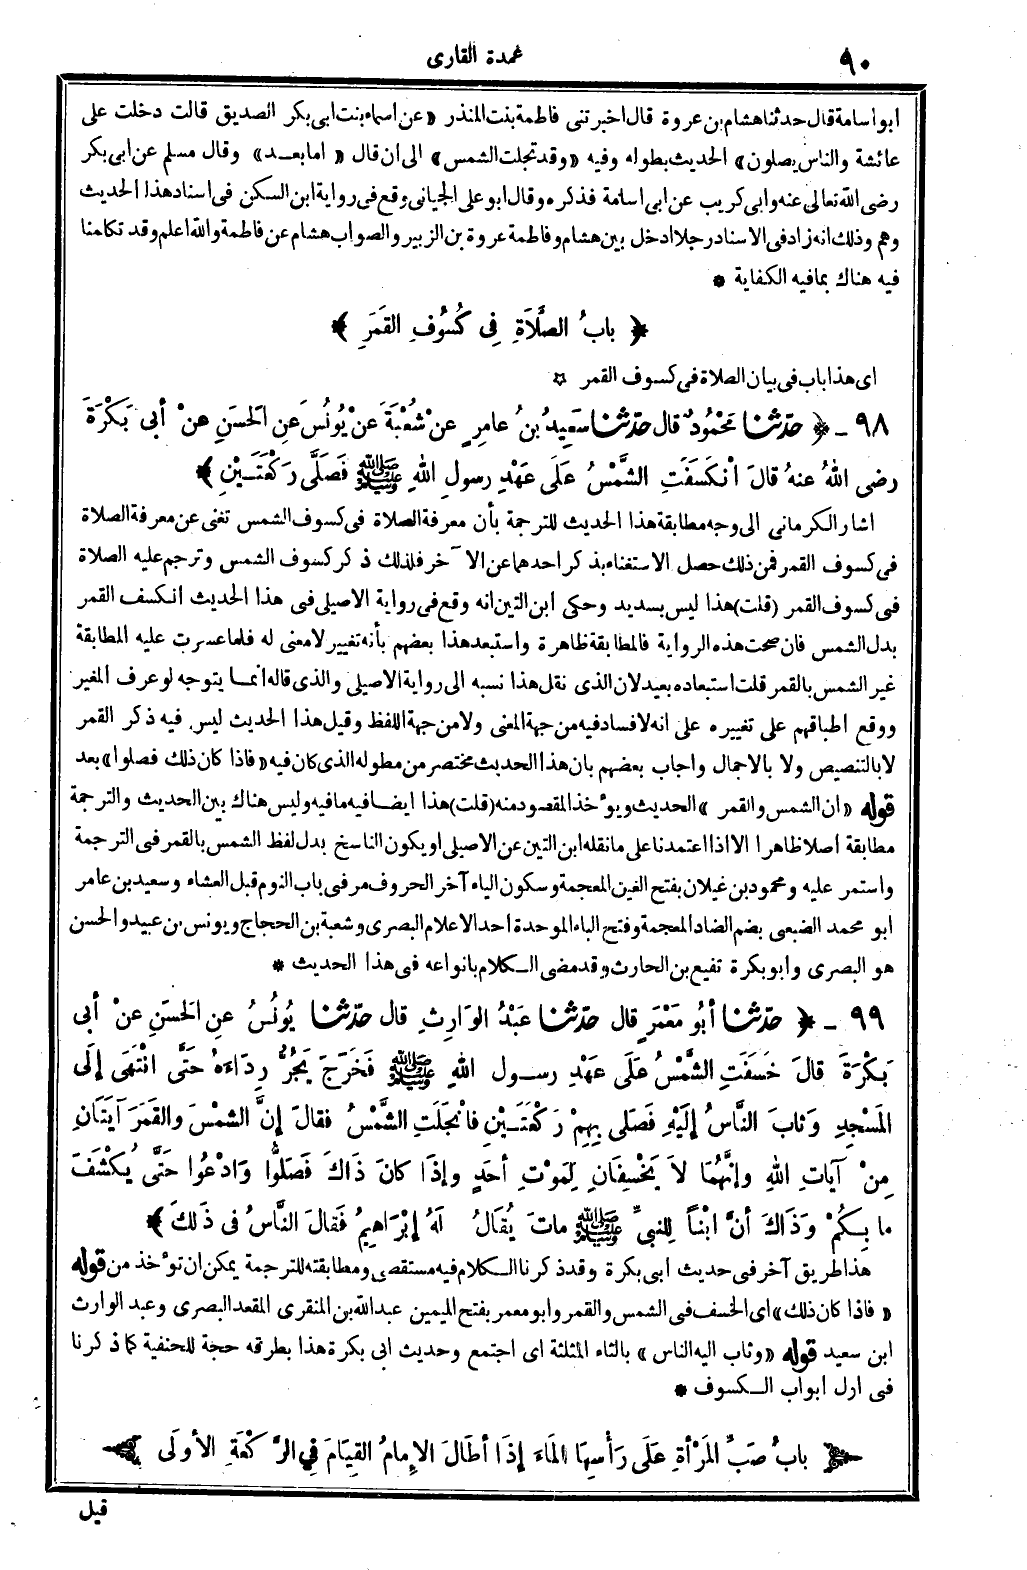 ٩٠
عمدة القارى
ابو اسامة قال حدثنا هشام بن عروة قال اخبرتنى فاطمة بنت المنذر «عن اسماء بنت ابى بكر الصديق قالت دخلت على
عائشة والناس يصلون» الحديث بطوله وفيه «وقد تجلت الشمس» الى ان قال «اما بعد» وقال مسلم عن ابى بكر
رضى الله تعالى عنه وابى كريب عن ابى اسامة فذكره وقال ابو على الجيانى وقع فى رواية ابن السكن فى اسناد هذا الحديث
وهم وذلك انه زاد فى الاسناد رجلا ادخل بين هشام وفاطمة عروة بن الزبير والصواب هشام عن فاطمة والله اعلم وقد تكلمنا
فيه هناك بما فيه الكفاية *
﴿ بابُ الصَّلَاةِ فِى كُسُوُفِ القَمَرِ ﴾
اى هذا باب فى بيان الصلاة فى كسوف القمر ☆
٩٨ - ﴿ حدّثنا مَحْمُودٌ قال حدّثنا سَعِيدُ بنُ عامِرٍ عنْ شُعْبَةَ عنْ يُونُسَ عنِ الحَسَنِ عنْ أبى بَكْرَةَ
رضى اللهُ عنهُ قالَ انْكَسَفَتِ الشَّمْسُ عَلَى عَهْدِ رسولِ اللهِ ﷺ فَصَلَّى رَكْعَتَـيْنِ ﴾
اشار الكرمانى الى وجه مطابقة هذا الحديث للترجمة بأن معرفة الصلاة فى كسوف الشمس تغنى عن معرفة الصلاة
فى كسوف القمر فمن ذلك حصل الاستغناء بذكر احدهما عن الآخر فلذلك ذكر كسوف الشمس وترجم عليه الصلاة
فى كسوف القمر (قلت) هذا ليس بسديد وحكى ابن التين انه وقع فى رواية الاصيلى فى هذا الحديث انكسف القمر
بدل الشمس فان صحت هذه الرواية فالمطابقة ظاهرة واستبعد هذا بعضهم بأنه تغيير لا معنى له فلما عسرت عليه المطابقة
غير الشمس بالقمر قلت استبعاده بعيد لان الذى نقل هذا نسبه الى رواية الاصيلى والذى قاله انما يتوجه لو عرف المغير
ووقع اطباقهم على تغييره على انه لا فساد فيه من جهة المعنى ولا من جهة اللفظ وقيل هذا الحديث ليس فيه ذكر القمر
لا بالتنصيص ولا بالاجمال واجاب بعضهم بان هذا الحديث مختصر من مطوله الذى كان فيه «فاذا كان ذلك فصلوا» بعد
قوله «ان الشمس والقمر» الحديث ويؤخذ المقصود منه (قلت) هذا ايضا فيه ما فيه وليس هناك بين الحديث والترجمة
مطابقة أصلا ظاهرا الا اذا اعتمدنا على ما نقله ابن التين عن الاصيلى او يكون الناسخ بدل لفظ الشمس بالقمر فى الترجمة
واستمر عليه ومحمود بن غيلان بفتح الغين المعجمة وسكون الياء آخر الحروف مر فى باب النوم قبل العشاء وسعيد بن عامر
ابو محمد الضبعى بضم الضاد المعجمة وفتح الباء الموحدة احد الاعلام البصرى وشعبة بن الحجاج ويونس بن عبيد والحسن
هو البصرى وابو بكرة نفيع بن الحارث وقد مضى الكلام بانواعه فى هذا الحديث *
٩٩ - ﴿ حدّثنا أبُو مَعْمَرٍ قال حدّثنا عَبْدُ الوَارِثِ قال حدّثنا يُونُسُ عنِ الحَسَنِ عنْ أبى
بَكْرَةَ قالَ خَسَفَتِ الشَّمْسُ عَلَى عَهْدِ رسولِ اللهِ ﷺ فَخَرَجَ يَجُرُّ رِدَاءَهُ حَتَّى انْتَهَى إلَى
المَسْجِدِ وَثَابَ النَّاسُ إلَيْهِ فَصَلى بِهِمْ رَكْعَتَـيْنِ فانْجَلَتِ الشَّمْسُ فقالَ إنَّ الشمْسَ والقَمَرَ آيَتَانِ
مِنْ آيَاتِ اللهِ وإنَّهُمَا لاَ يَخْسِفَانِ لِمَوْتِ أحَدٍ وإذَا كانَ ذَاكَ فَصَلُّوا وَادْعُوا حَتَّى يُكْشَفَ
ما بِكُمْ وَذَاكَ أنَّ ابْناً لِلنبيِّ ﷺ ماتَ يُقَالُ لَهُ إبْرَاهِيمُ فَقالَ النَّاسُ فى ذَلِكَ ﴾
هذا طريق آخر فى حديث ابى بكرة وقد ذكرنا الكلام فيه مستقصى ومطابقته للترجمة يمكن ان تؤخذ من قوله
«فاذا كان ذلك» اى الخسف فى الشمس والقمر وابو معمر بفتح الميمين عبد الله بن المنقرى المقعد البصرى وعبد الوارث
ابن سعيد قوله «وثاب اليه الناس» بالثاء المثلثة اى اجتمع وحديث ابى بكرة هذا بطرقه حجة للحنفية كما ذكرنا
فى ارل ابواب الكسوف *
بابُ صَبِّ المَرْأةِ عَلَى رَأسِهَا المَاءَ إذَا أطَالَ الإمامُ القِيَامَ فِي الرَّكْعَةِ الأولَى
قيل